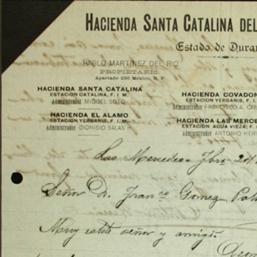 HACIENDA SANTA CATALINA DEL
Estado de Duran
PABLO MARTINEZ DEL RIO
PROPIETARIO.
Apartado 250 México, D. F.
HACIENDA SANTA CATALINA
ESTACION CATALINA, F. I. M.
Administrador MIGUEL SOTO
HACIENDA COVADON
ESTACION YERBANIS, F. I. M.
Administrador FRANCISCO A.
HACIENDA EL ALAMO
ESTACION YERBANIS, F. I. M.
Administrador DIONISIO SALAS
HACIENDA LAS MERCE
ESTACION AGUA VIEJA, F.
Administrador ANTONIO HER
Las Mercedes 7bre. 24
Señor D. Franco Gomez Pal
Muy estdo señor y amigo: